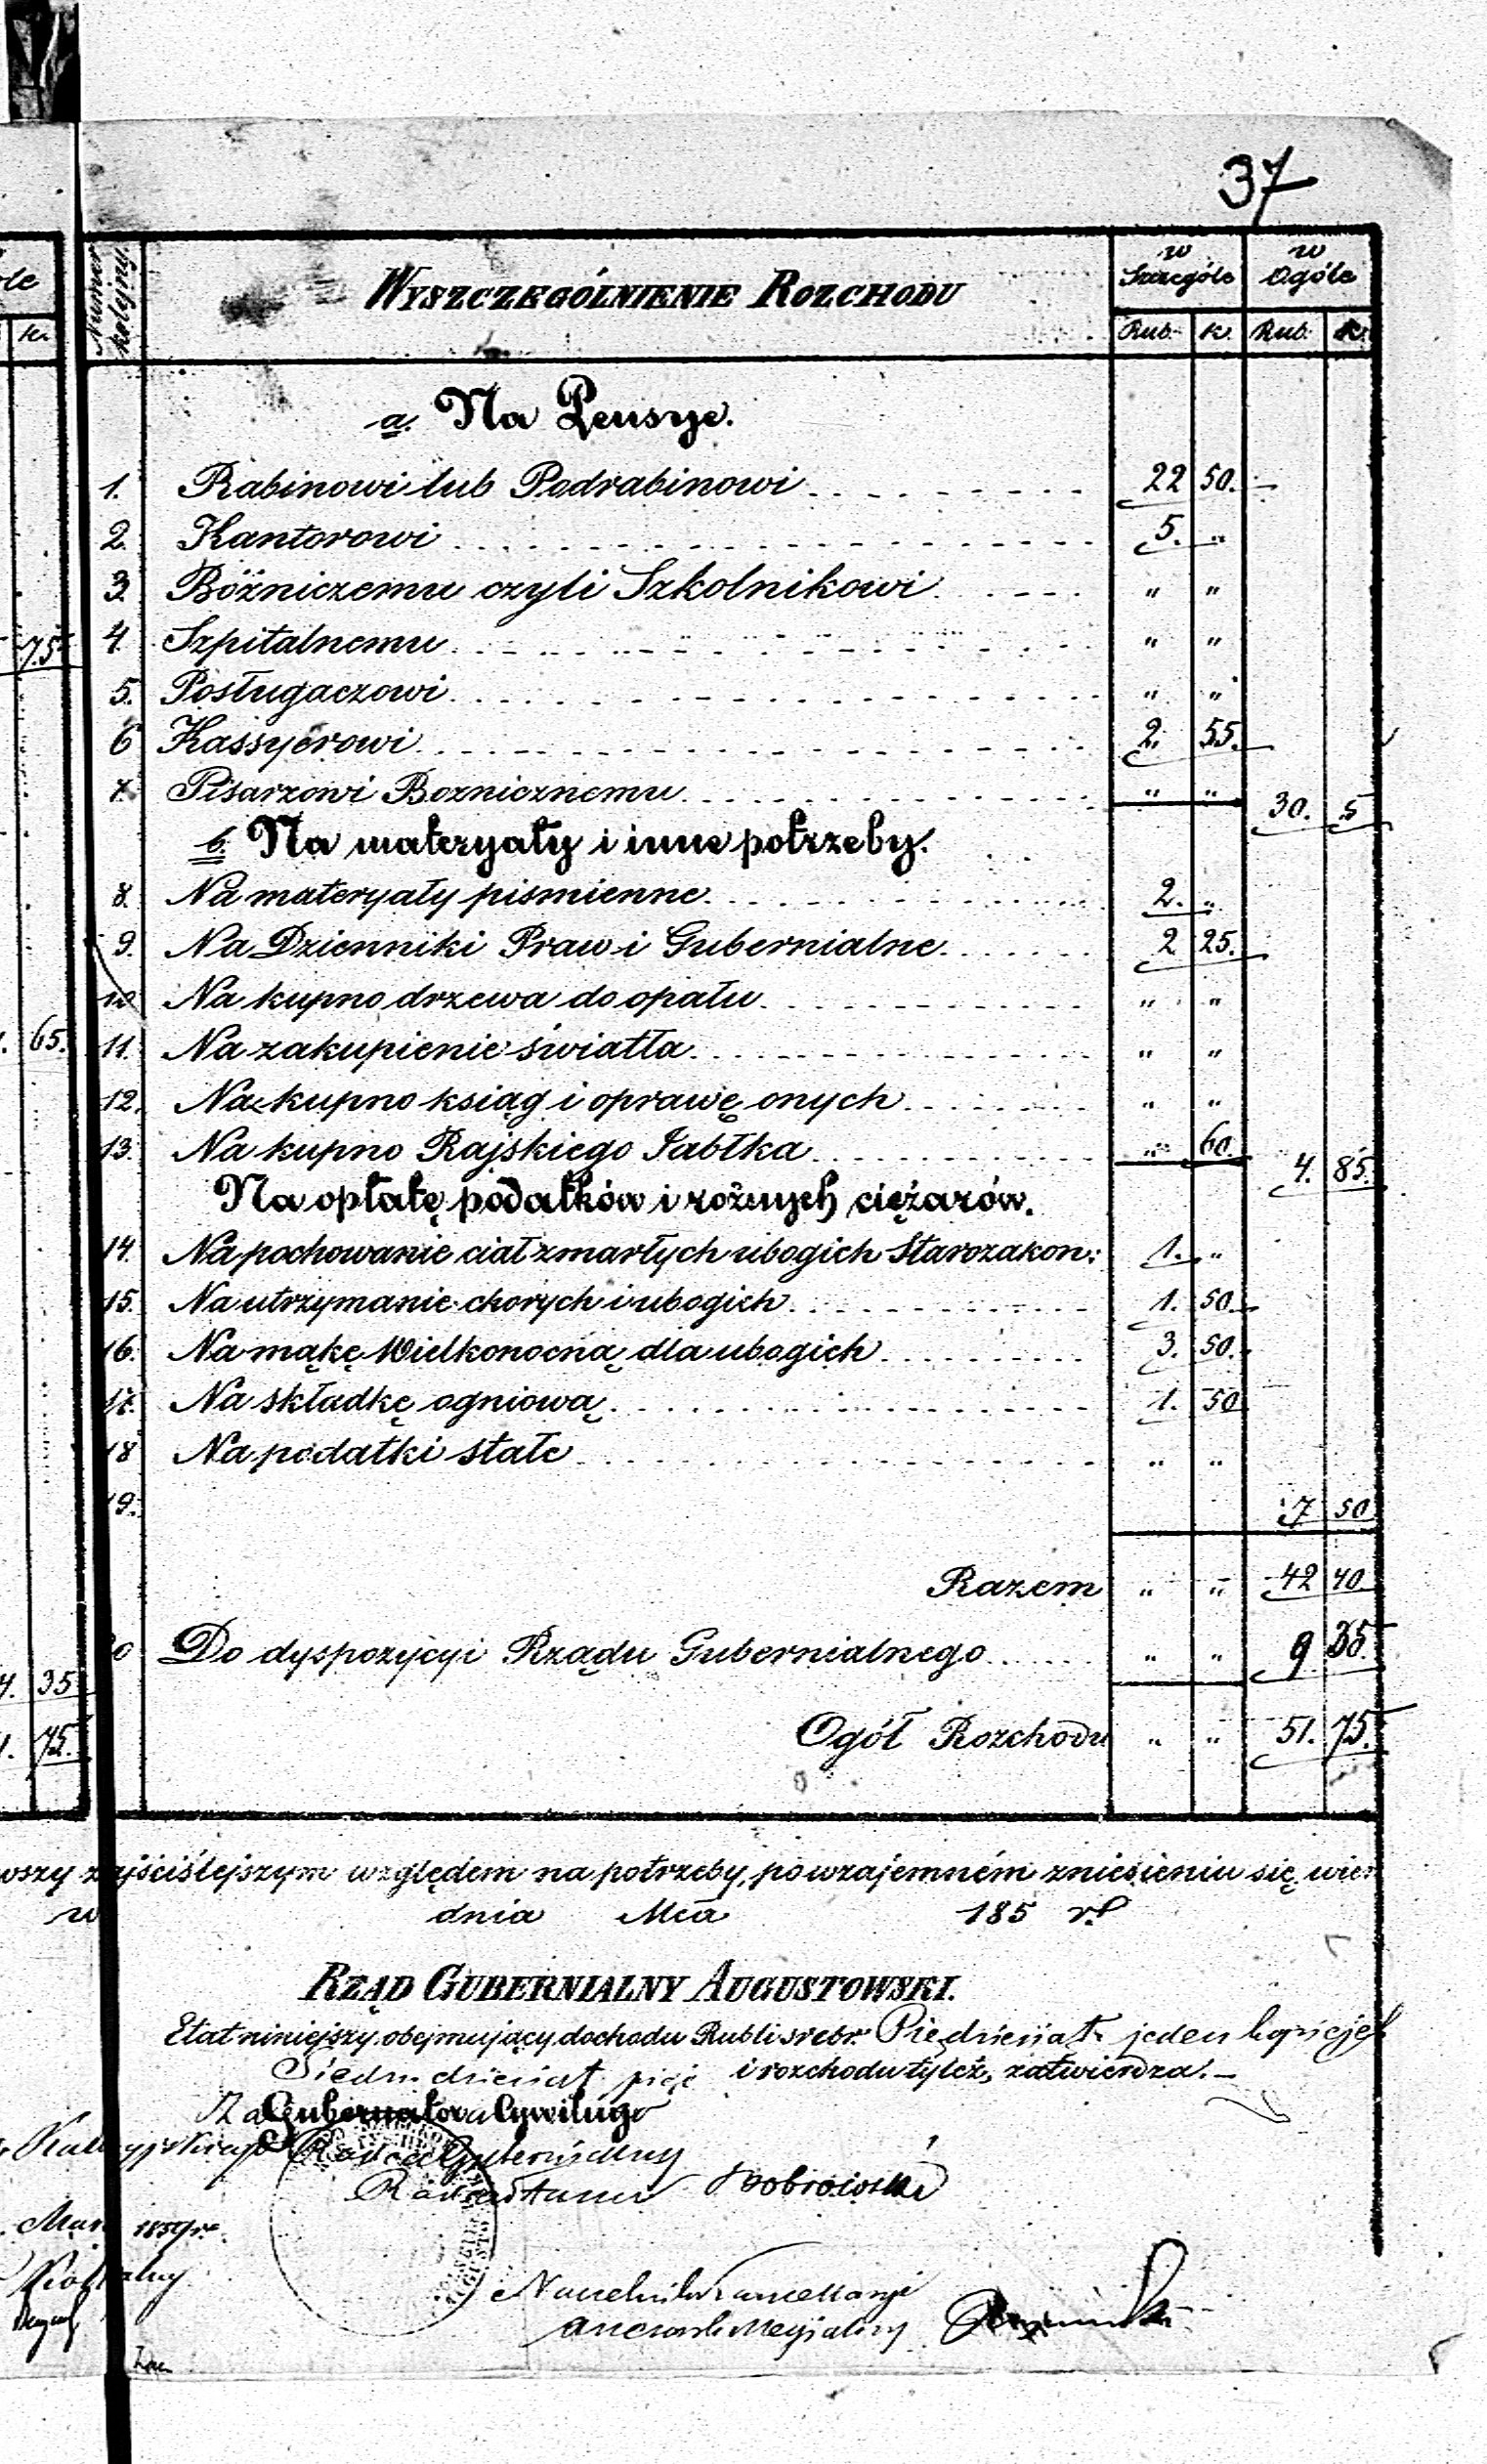 37
ole
k.
Numer kolejny.
WYSZCZEGÓLNIENIE ROZCHODU
w Szczególe
w Ogóle
Rub. k. Rub. k.
a. Na Pensye.
1. Rabinowi lub Podrabinowi 22 50.
2. Kantorowi 5. "
3. Bóźniczemu czyli Szkolnikowi " "
75
4. Szpitalnemu " "
5. Posługaczowi " "
6 Kassyerowi 2. 55.
7. Pisarzowi Boznicznemu " " 30. 5
b. Na materyały i inne potrzeby.
8. Na materyały pismienne 2. "
9. Na Dzienniki Praw i Gubernialne 2 25.
10 Na kupno drzewa do opału " "
65.
11. Na zakupienie światła " "
12. Na kupno ksiąg i oprawę onych " "
13. Na kupno Rajskiego Jabłka " 60. 4. 85.
Na opłatę podatków i rożnych ciężarów.
14. Na pochowanie ciał zmarłych ubogich Starozakon: 1. "
15. Na utrzymanie chorych i ubogich 1. 50
16. Na mąkę Wielkonocną dla ubogich 3. 50.
17. Na składkę ogniową 1. 50
18 Na podatki stałe " "
19. 7 50
Razem " " 42 40
20 Do dyspozycyi Rządu Gubernialnego " " 9 35.
35
Ogół Rozchodu " " 51. 75.
75.
wszy zajściślejszym względem na potrzeby, po wzajemném zniesieniu się, wier
w dnia Mca 185 r.
RZĄD GUBERNIALNY AUGUSTOWSKI.
Etat niniejszy obejmujący dochodu Rubli srebr. Pięćdziesiąt jeden kopiejek
Siedmdziesiąt pięć i rozchodu tyleż, zatwierdza.
Za Gubernatora Cywilnego
Radca Gubernialny
Radca Stanu
Naczelnik Kancellaryi